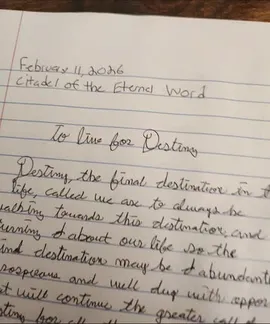 February 11, 2026
Citadel of the Eternal Word
To live for Destiny
Destiny, the final destination in t
life, called we are to always be
walking towards this destination, and
urning & about our life so the
ind destination may be & abundant
rosperous and well dug with oppor
t will continue the greater call